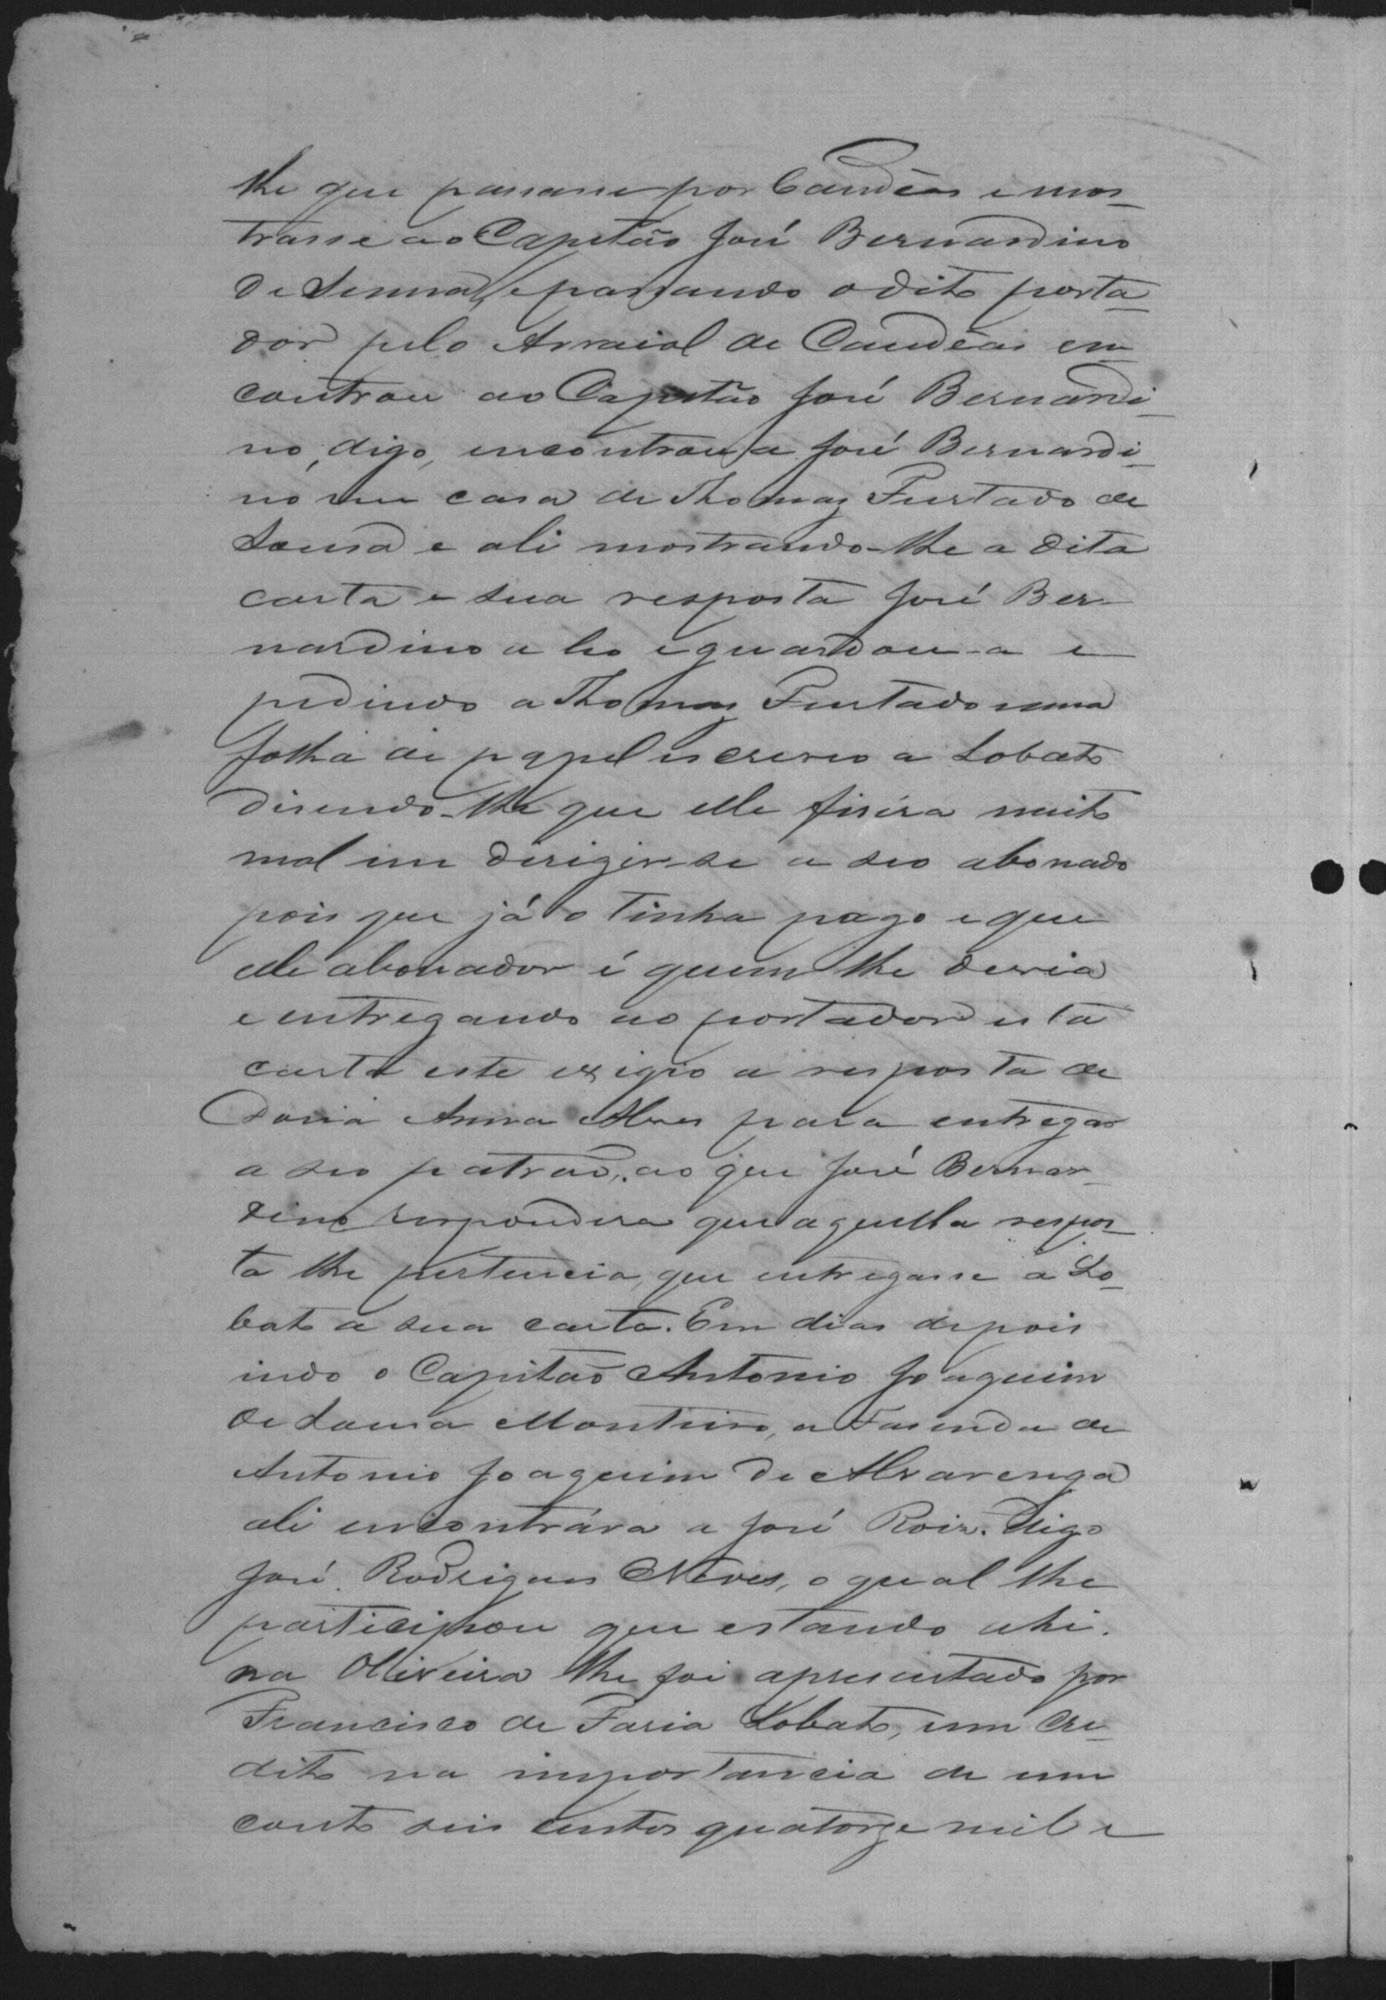 lhe que passasse por Candêas e mos-
trasse ao Capitão José Bernardino
de Senna, e passando o dito porta-
dor pelo Arraial de Candêas en-
controu ao Capitão José Bernardi-
no, digo, encontrou a José Bernardi-
no em casa de Thomaz Furtado de
Sousa e ali mostrando-lhe a dita
carta e sua resposta José Ber-
nardino a leo e guardou-a e
pedindo a Thomaz Furtado uma
folha de papel escreveo a Lobato
disendo-lhe que elle fisera muito
mal em dirigir-se a seo abonado
pois que já o tinha pago e que
elle abonador é quem lhe devia
e entregando ao portador esta
carta este exigio a resposta de
Dona Anna Alves para entregar
a seo patrão, ao que José Bernar-
dino respondera que aquella respos-
ta lhe pertencia, que entregasse a Lo-
bato a sua carta. Em dias depois
indo o Capitão Antonio Joaquim
de Sousa Monteiro, a Fasenda de
Antonio Joaquim de Alvarenga
ali encontrára a José Roiz. digo
José Rodrigues Neves, o qual lhe
participou que estando ahi
na Oliveira lhe foi apresentado por
Francisco de Faria Lobato, um cre-
dito na importancia de um
conto seis centos quatorze mil e